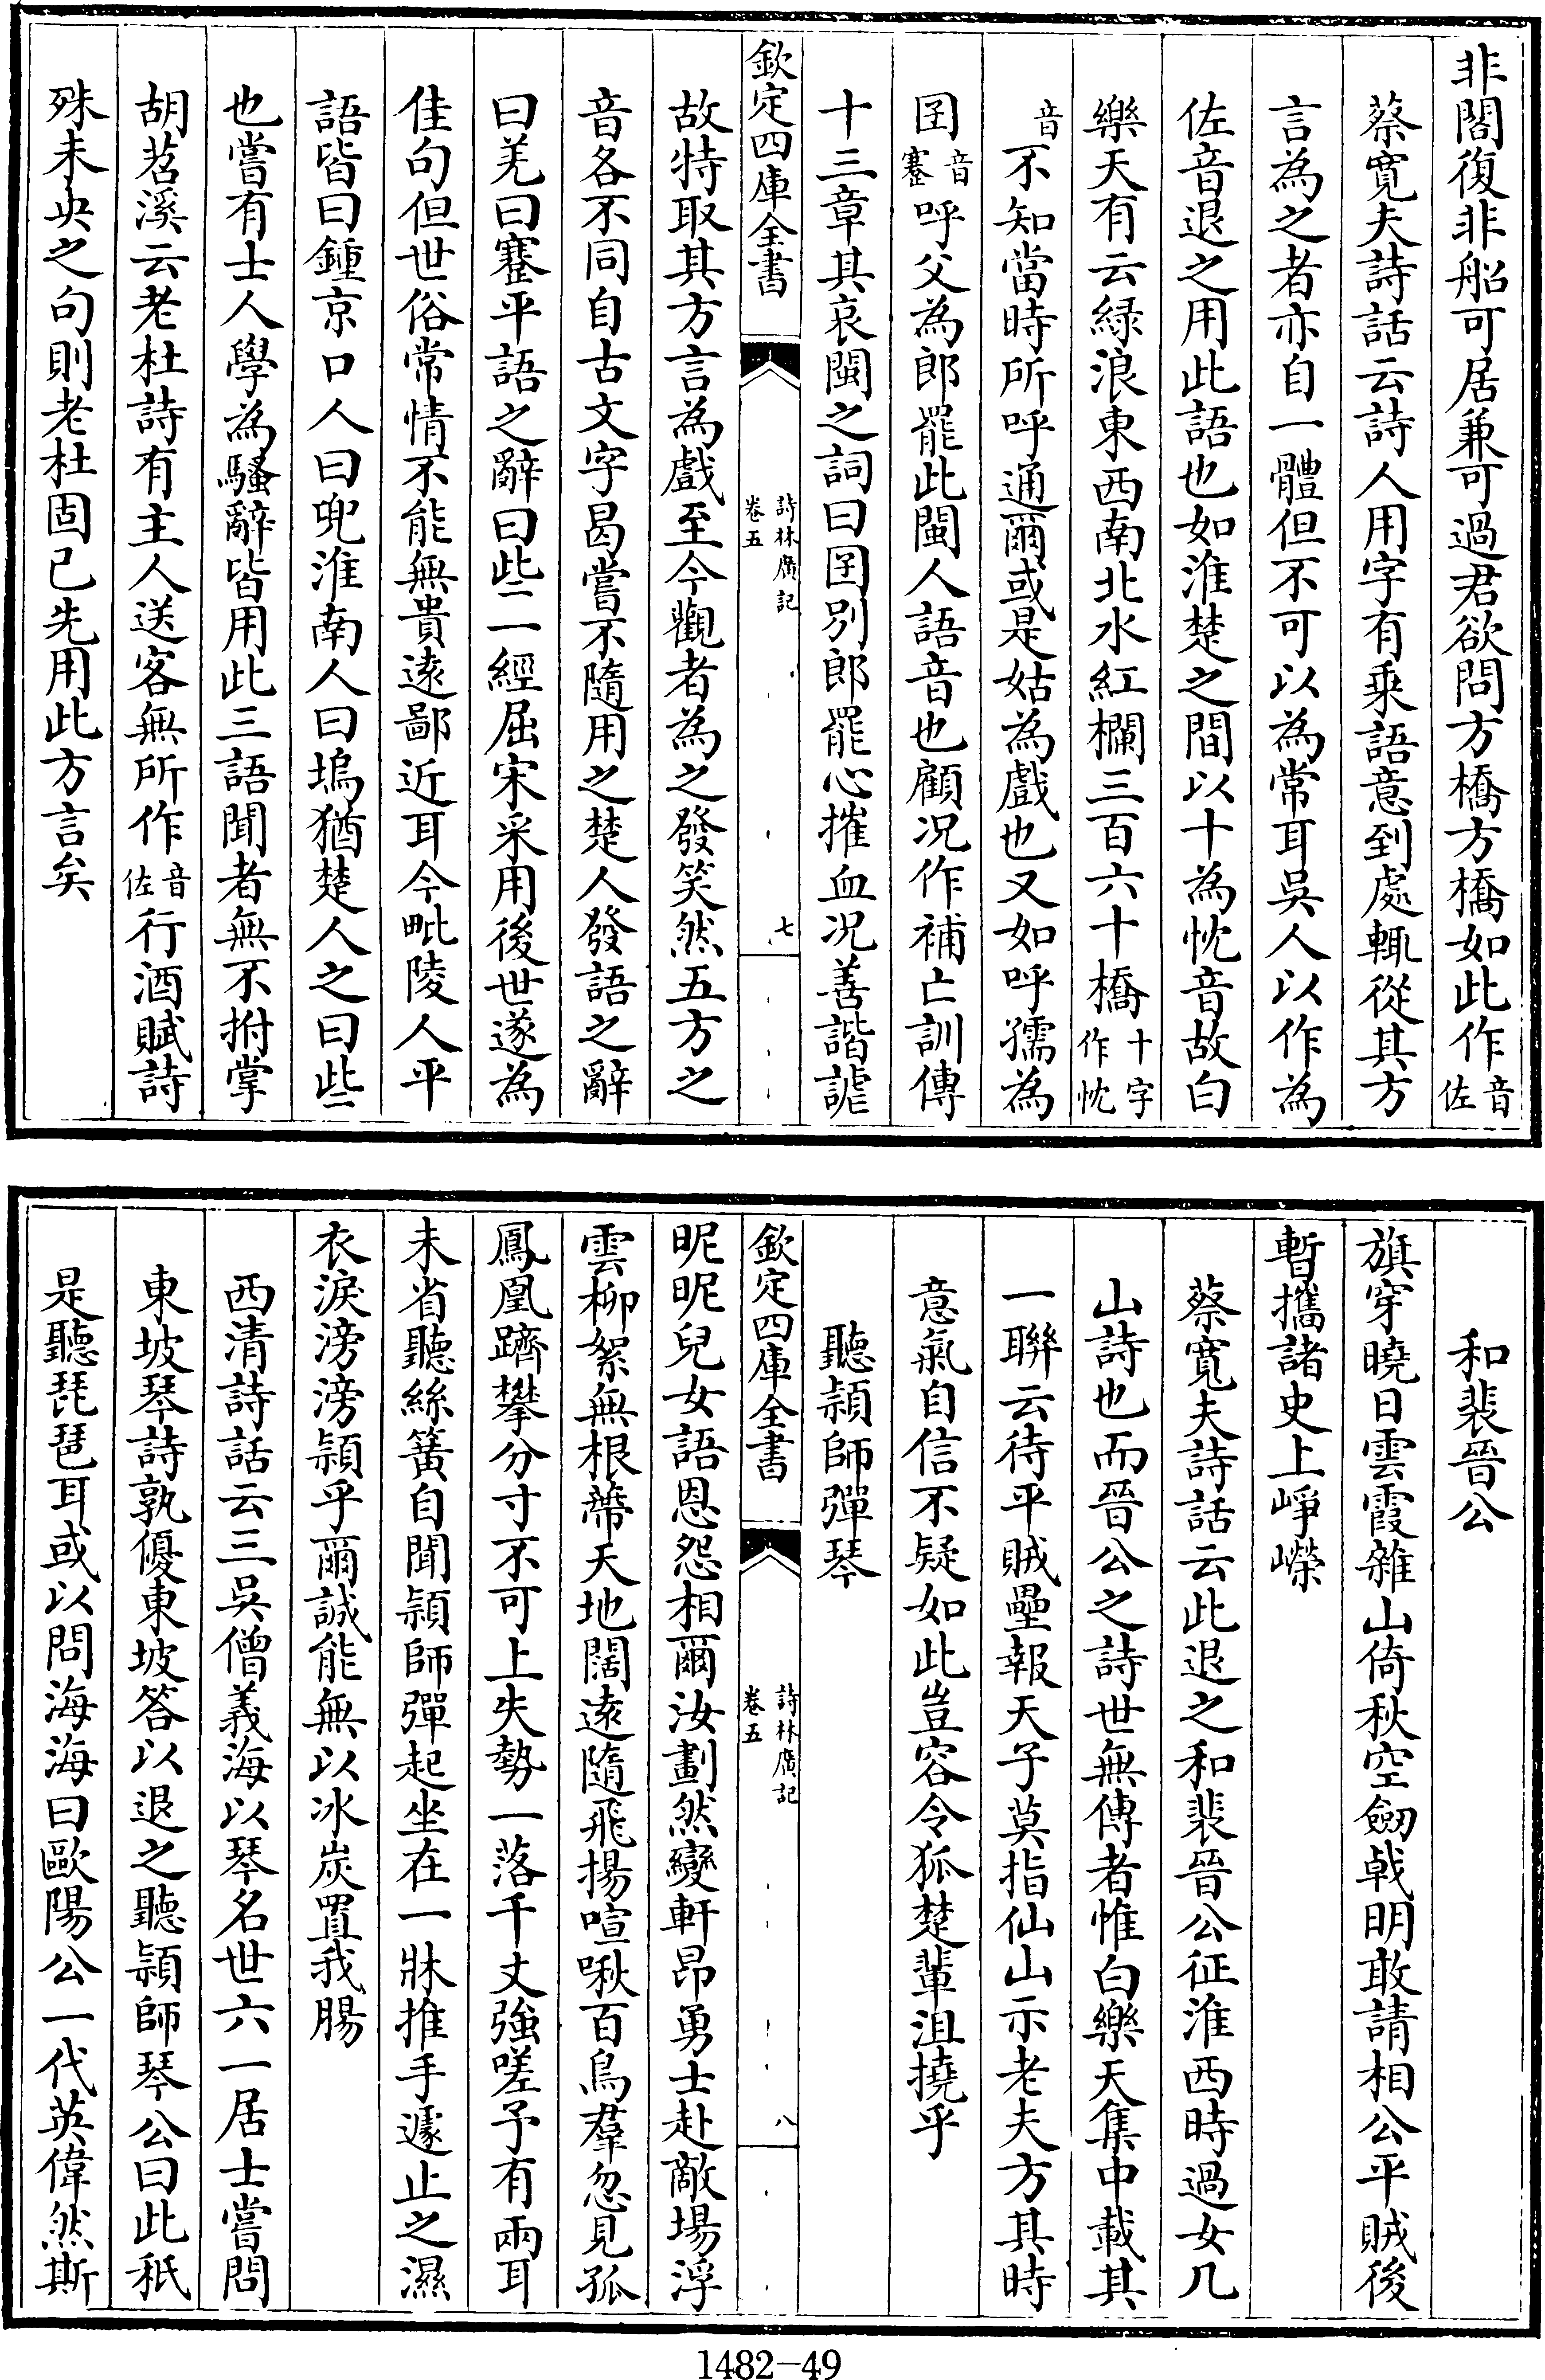 非閣復非船可居兼可過君欲問方橋方橋如此作音佐
蔡寛夫詩話云詩人用字有乗語意到處輒從其方
言為之者亦自一體但不可以為常耳吳人以作為
佐音退之用此語也如淮楚之間以十為忱音故白
樂天有云緑浪東西南北水紅欄三百六十橋十字作忱
音不知當時所呼通爾或是姑為戲也又如呼孺為
囝音蹇呼父為郎罷此閩人語音也顧况作補亡訓傳
十三章其哀閩之詞曰囝别郎罷心摧血况善諧謔
欽定四庫全書
詩林廣記
卷五
七
故特取其方言為戲至今觀者為之發笑然五方之
音各不同自古文字曷嘗不隨用之楚人發語之辭
曰羌曰蹇平語之辭曰些一經屈宋采用後世遂為
佳句但世俗常情不能無貴遠鄙近耳今毗陵人平
語皆曰鍾京口人曰兜淮南人曰塢猶楚人之曰些
也嘗有士人學為騷辭皆用此三語聞者無不拊掌
胡苕溪云老杜詩有主人送客無所作音佐行酒賦詩
殊未央之句則老杜固已先用此方言矣
和裴晉公
旗穿曉日雲霞雜山倚秋空劒㦸明敢請相公平賊後
暫攜諸史上崢嶸
蔡寛夫詩話云此退之和裴晉公征淮西時過女几
山詩也而晉公之詩世無傳者惟白樂天集中載其
一聯云待平賊壘報天子莫指仙山示老夫方其時
意氣自信不疑如此豈容令狐楚輩沮撓乎
聽頴師彈琴
欽定四庫全書
詩林廣記
卷五
八
昵昵兒女語恩怨相爾汝劃然變軒昂勇士赴敵場浮
雲柳絮無根蔕天地闊遠隨飛揚喧啾百鳥羣忽見孤
鳳凰躋攀分寸不可上失勢一落千丈強嗟予有兩耳
未省聽絲簧自聞頴師彈起坐在一牀推手遽止之濕
衣淚滂滂頴乎爾誠能無以冰炭置我腸
西清詩話云三吳僧義海以琴名世六一居士嘗問
東坡琴詩孰優東坡答以退之聽頴師琴公曰此秖
是聽琵琶耳或以問海海曰歐陽公一代英偉然斯
1482-49